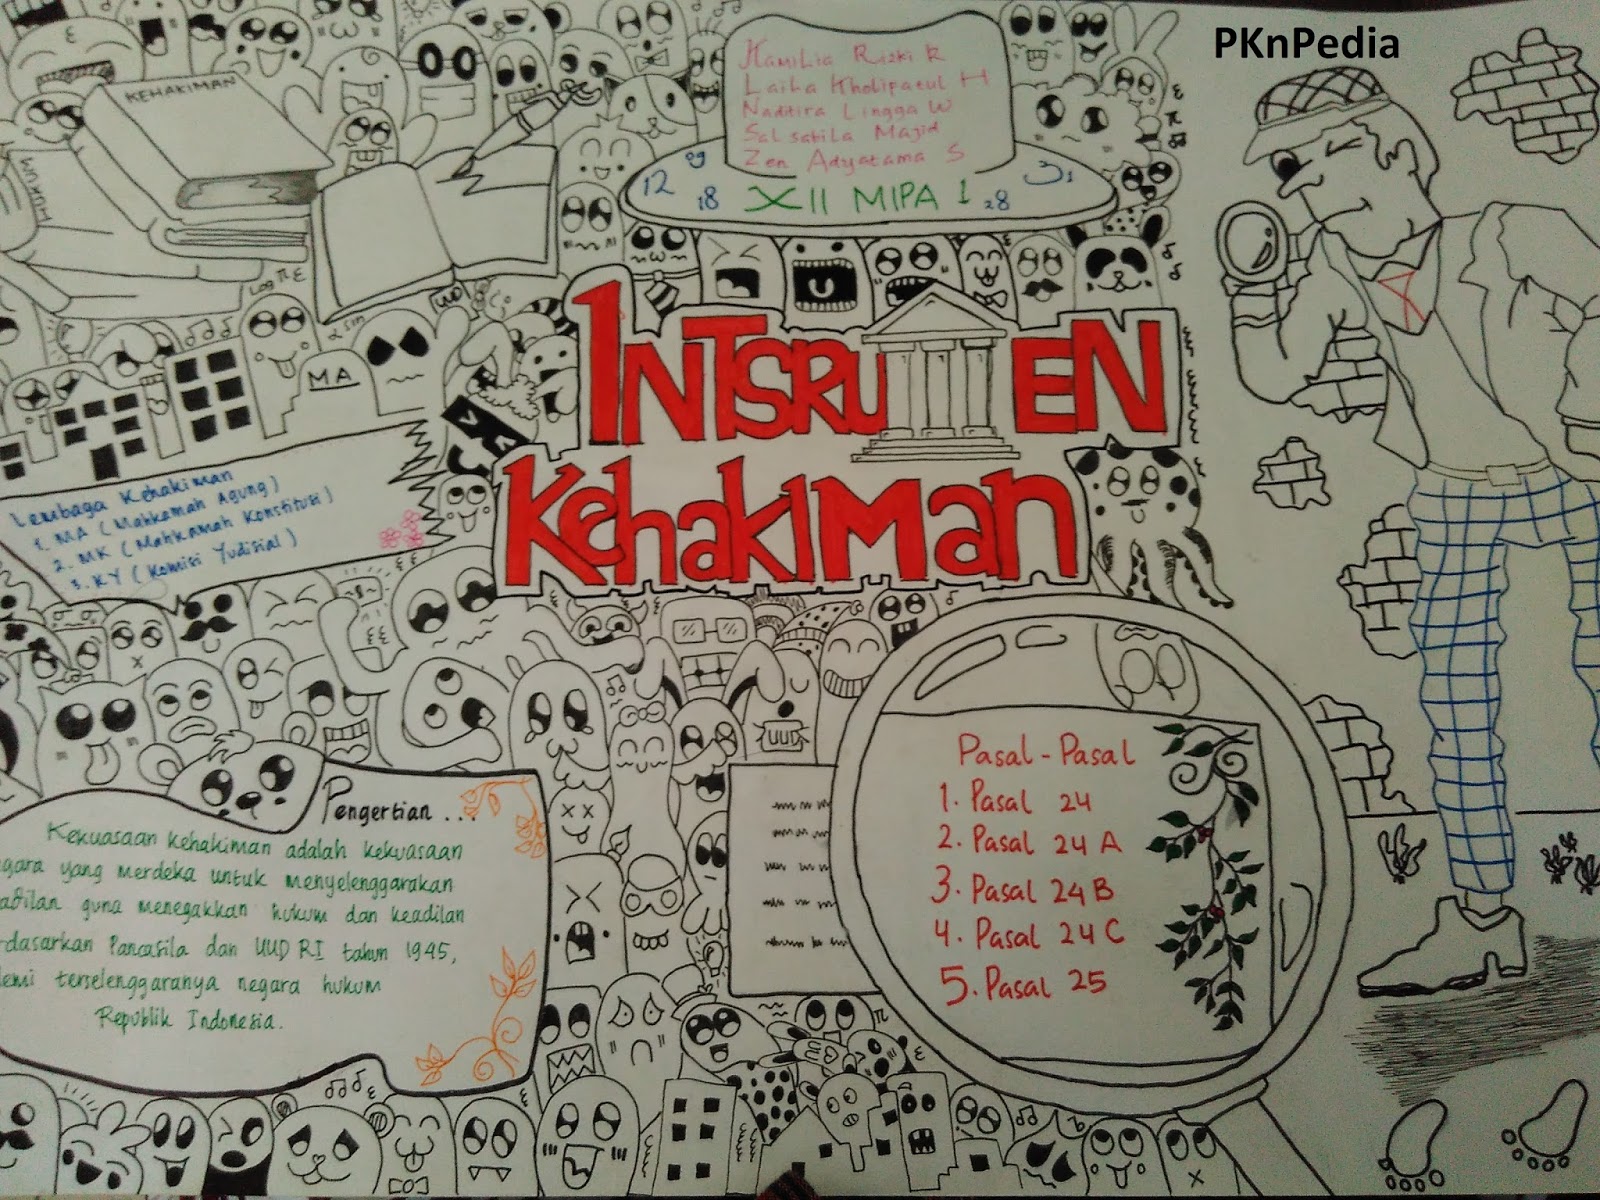 PKnPedia
Kamilia Rizki R
Laila Kholipatul H
Naditira Lingga W
Salsabila Majid
Zen Adyatama S
12 09 18 XII MIPA 1 28 31
KEHAKIMAN
HUKUM
INTSRUMEN
KEHAKIMAN
MA
Lembaga Kehakiman
1. MA (Mahkamah Agung)
2. MK (Mahkamah Konstitusi)
3. KY (Komisi Yudisial)
UUD
Pengertian ...
Kekuasaan kehakiman adalah kekuasaan
gara yang merdeka untuk menyelenggarakan
adilan guna menegakkan hukum dan keadilan
rdasarkan Pancasila dan UUD RI tahun 1945,
emi terselenggaranya negara hukum
Republik Indonesia.
Pasal-Pasal
1. Pasal 24
2. Pasal 24 A
3. Pasal 24 B
4. Pasal 24 C
5. Pasal 25